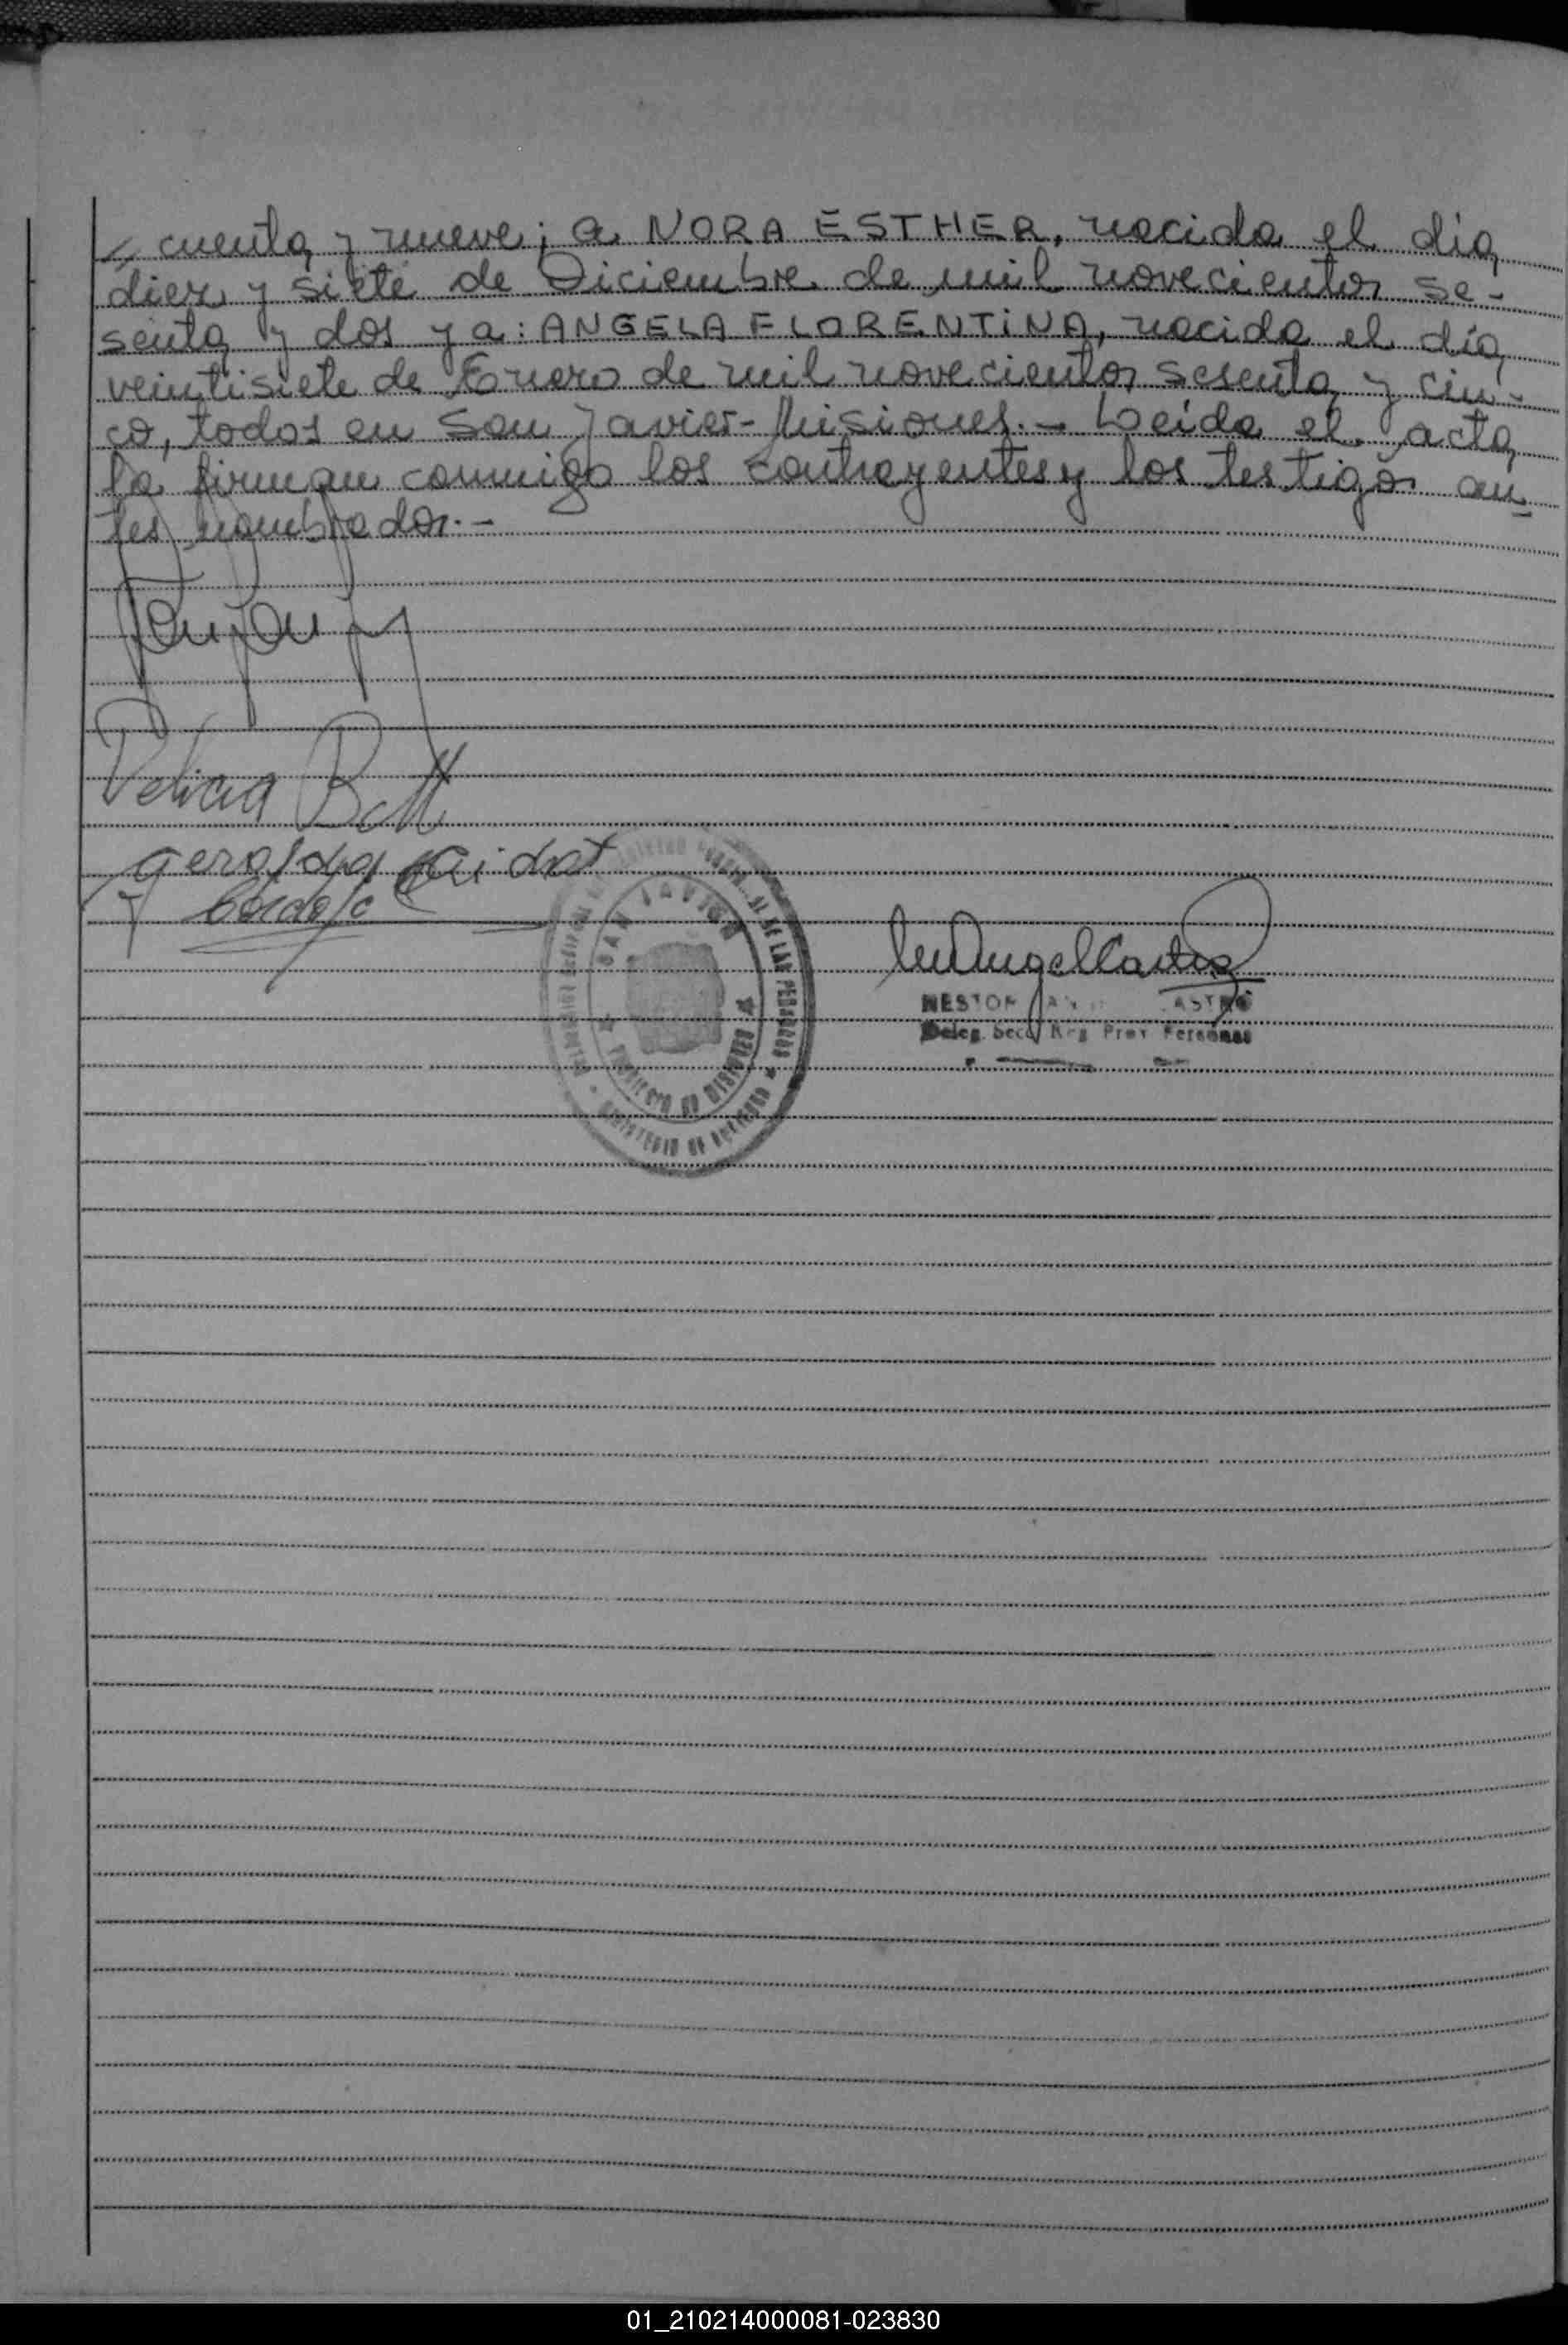 // cuenta y nueve; a NORA ESTHER, nacida el día
diez y siete de Diciembre de mil novecientos se-
senta y dos y a: ANGELA FLORENTINA, nacida el día
veintisiete de Enero de mil novecientos sesenta y cin-
co, todos en San Javier-Misiones.- Leída el acta
la firman conmigo los contrayentes y los testigos an
tes nombrados.-
SAN JAVIER
NESTOR
Deleg. Secc Reg Prov Personas
01_210214000081-023830